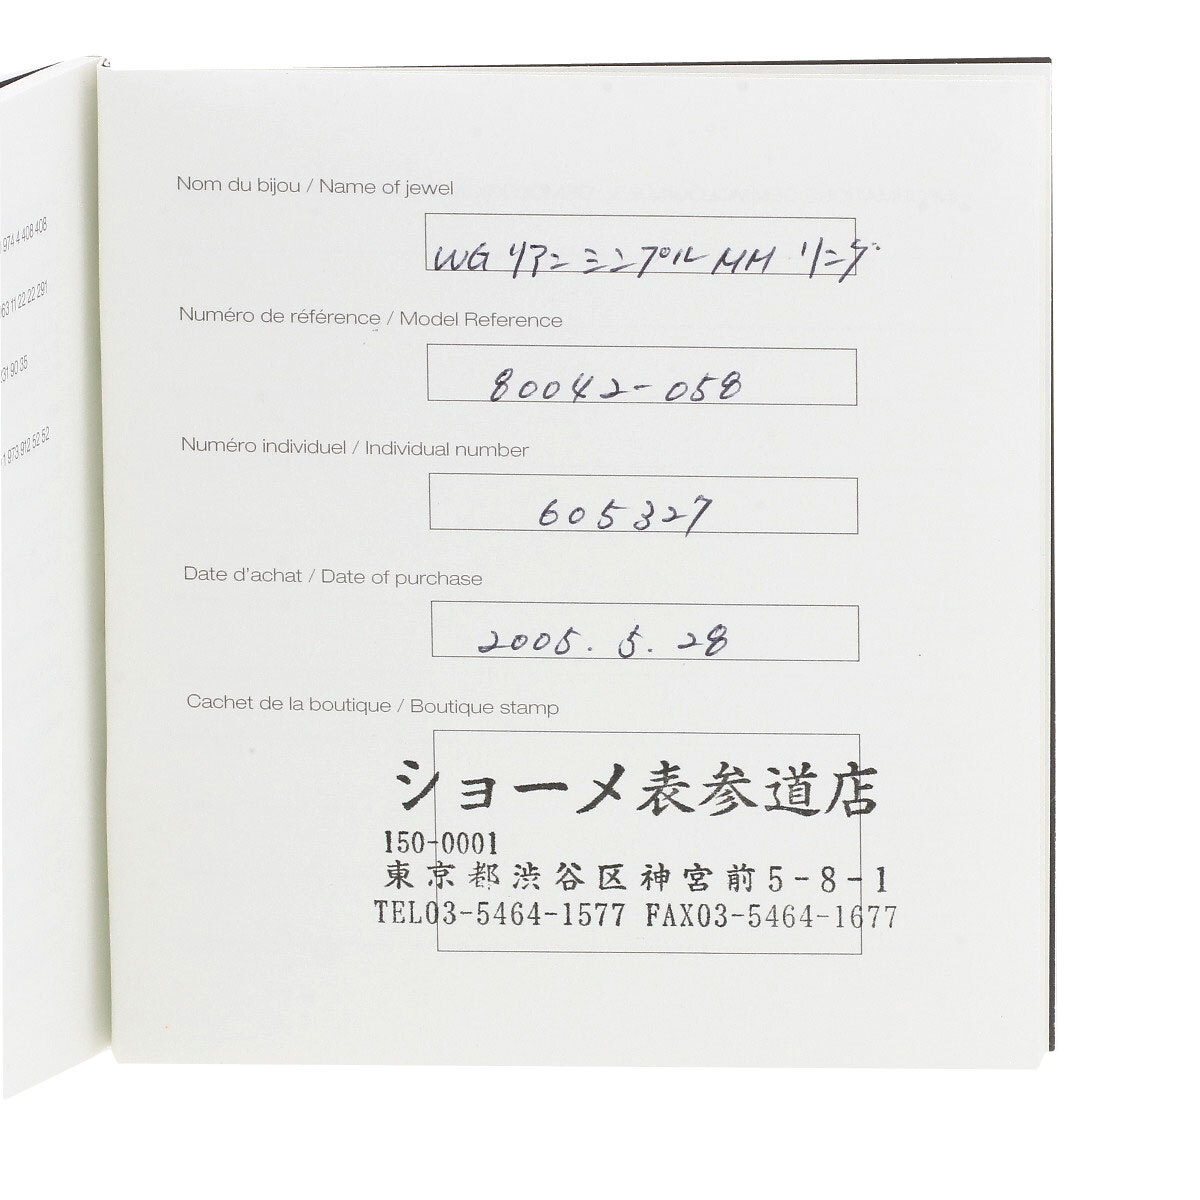 974 4 408 408
63 11 22 22 291
31 90 35
1 973 912 52 52
Nom du bijou / Name of jewel
WG リアン シンプル MM リング
Numéro de référence / Model Reference
80042-058
Numéro individuel / Individual number
605327
Date d'achat / Date of purchase
2005. 5. 28
Cachet de la boutique / Boutique stamp
ショーメ表参道店
150-0001
東京都渋谷区神宮前5-8-1
TEL03-5464-1577 FAX03-5464-1677